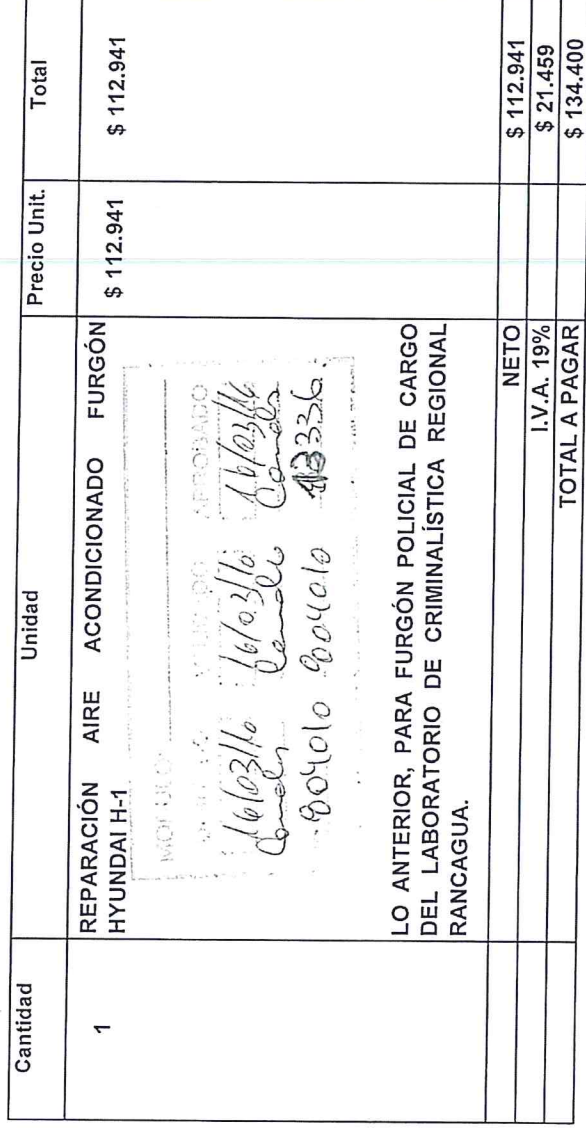 Cantidad Unidad Precio Unit. Total
1 REPARACIÓN AIRE ACONDICIONADO FURGÓN $ 112.941 $ 112.941
HYUNDAI H-1
MODULO
APROBADO
16/03/16 16/03/16 16/03/16
804010 804010
LO ANTERIOR, PARA FURGÓN POLICIAL DE CARGO
DEL LABORATORIO DE CRIMINALÍSTICA REGIONAL
RANCAGUA.
NETO $ 112.941
I.V.A. 19% $ 21.459
TOTAL A PAGAR $ 134.400